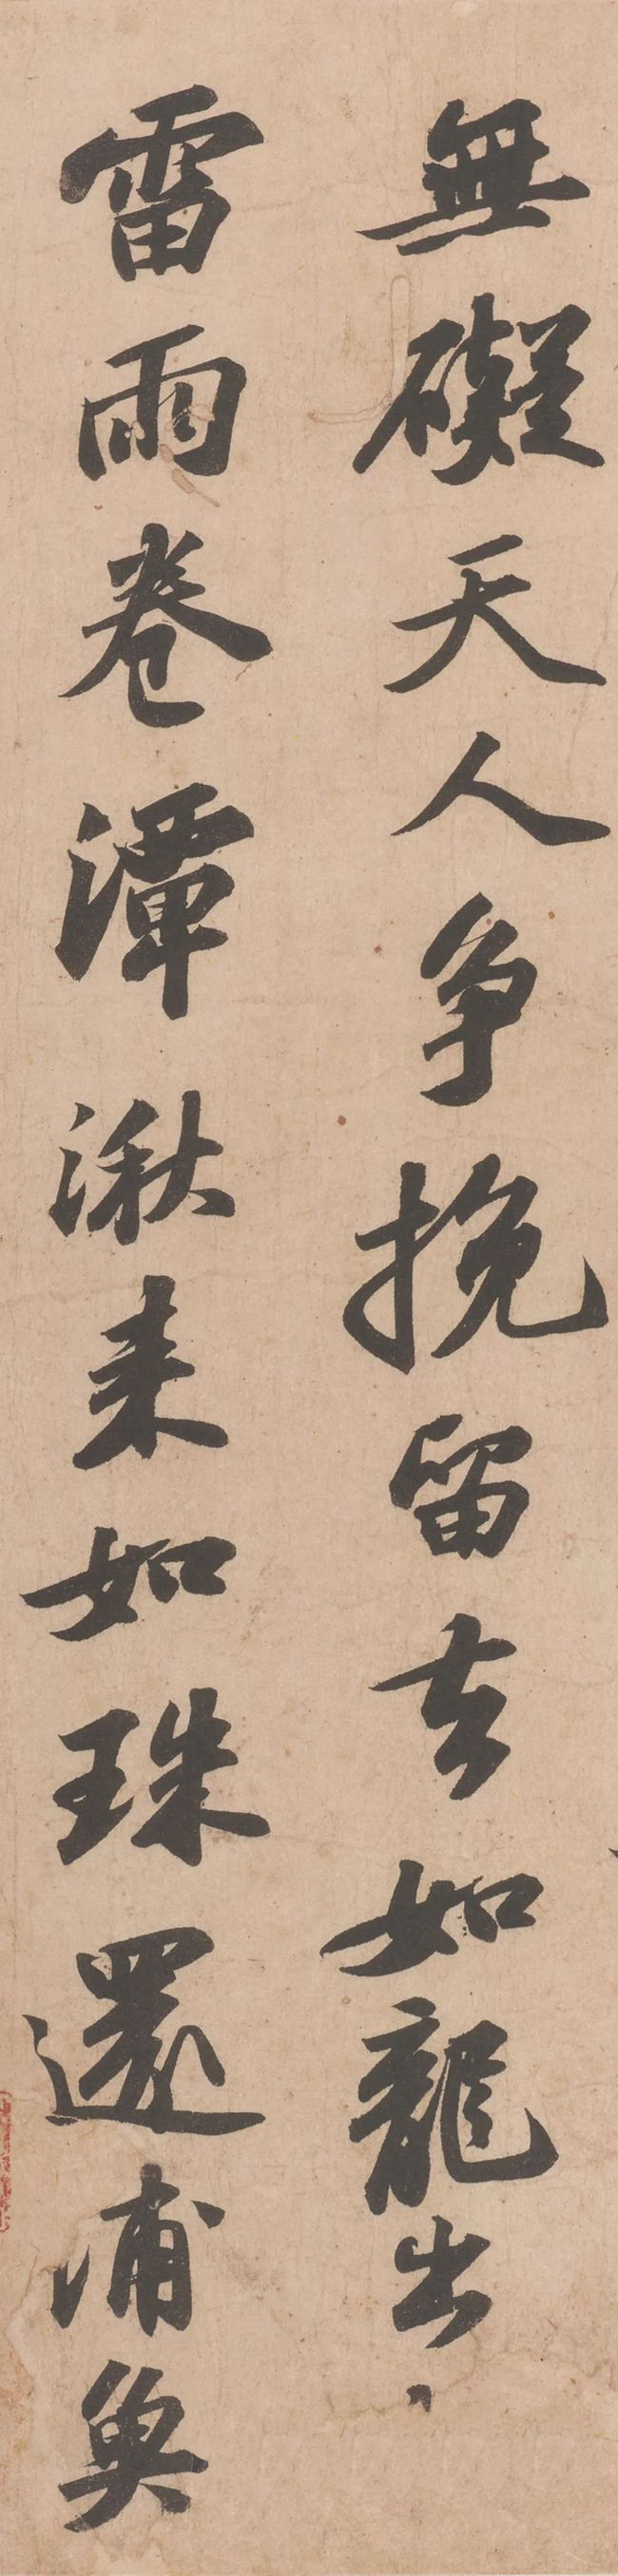 無礙天人爭挽留去如龍出
雷雨卷潭湫来如珠還浦魚